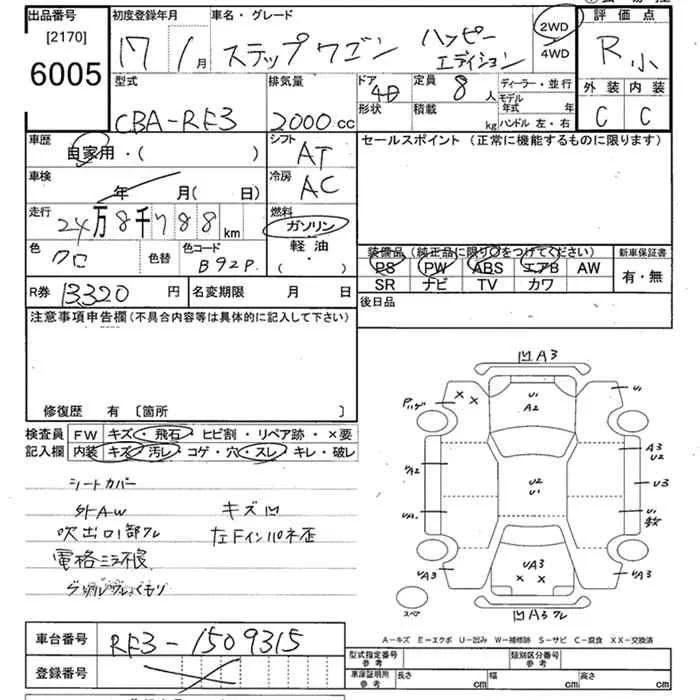 出品番号
[2170]
6005
初度登録年月
17 1月
車名・グレード
ステップワゴン ハッピーエディション
2WD
4WD
評価点
R 小
外装 内装
C C
型式
CBA-RF3
排気量
2000cc
ドア
4D
形状
定員
8人
積載
kg
ディーラー・並行
モデル年式 年
ハンドル 左・右
車歴
自家用・( )
シフト
AT
セールスポイント(正常に機能するものに限ります)
車検
年 月( 日)
冷房
AC
走行
24万8千788km
燃料
ガソリン
軽油
( ・ )
色
クロ
色替
色コード
B92P
装備品(純正品に限り○をつけてください)
PS PW ABS エアB AW
SR ナビ TV カワ
新車保証書
有・無
R券 13320円
名変期限 月 日
後日品
注意事項申告欄(不具合内容等は具体的に記入して下さい)
修復歴 有 〔箇所 〕
検査員記入欄
FW キズ・飛石・ヒビ割・リペア跡・×要
内装 キズ・汚レ・コゲ・穴・スレ・キレ・破レ
シートカバー
社外AW キズ凹
吹出口1部ワレ 左Fインパネ歪
電格ミラー不良
凹A3
U1
A2
U1
A3
U2
U3
U1
U2
U1
UA2
UA1
UA3
UA3
UA3
凹A3ワレ
スペア
A-キズ E-エクボ U-凹み W-補修跡 S-サビ C-腐食 XX-交換済
車台番号
RF3-1509315
登録番号
型式指定番号
参考
類別区分番号
参考
車庫証明用
参考
長さ cm
幅 cm
高さ cm